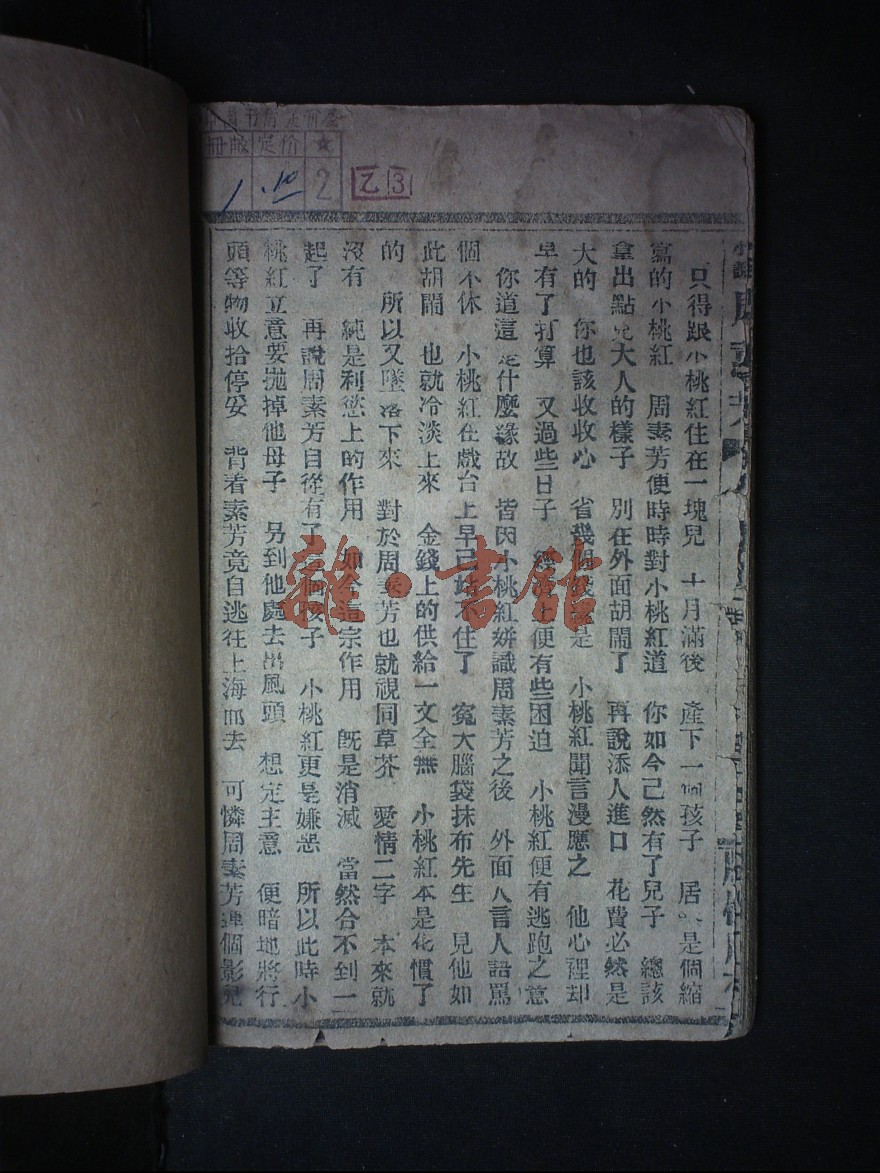 册數 定价 ★
1.10 2 乙 3
只得跟小桃紅住在一塊兒 十月滿後 產下一個孩子 居然是個縮
寫的小桃紅 周素芳便時時對小桃紅道 你如今己然有了兒子 總該
拿出點兒大人的樣子 別在外面胡鬧了 再說添人進口 花費必然是
大的 你也該收收心 省幾個錢就是 小桃紅聞言漫應之 他心裡却
早有了打算 又過些日子 經濟上便有些困迫 小桃紅便有逃跑之意
你道這是什麼緣故 皆因小桃紅姘識周素芳之後 外面人言人語罵
個不休 小桃紅在戲台上早己站不住了 冤大腦袋抹布先生 見他如
此胡鬧 也就冷淡上來 金錢上的供給一文全無 小桃紅本是花慣了
的 所以又墜落下來 對於周素芳也就視同草芥 愛情二字 本來就
沒有 純是利慾上的作用 如今這宗作用 旣是消滅 當然合不到一
起了 再說周素芳自從有了這個孩子 小桃紅更是嫌恶 所以此時小
桃紅立意要拋掉他母子 另到他處去出風頭 想定主意 便暗地將行
頭等物收拾停妥 背着素芳竟自逃往上海而去 可憐周素芳連個影兒
雜·書館